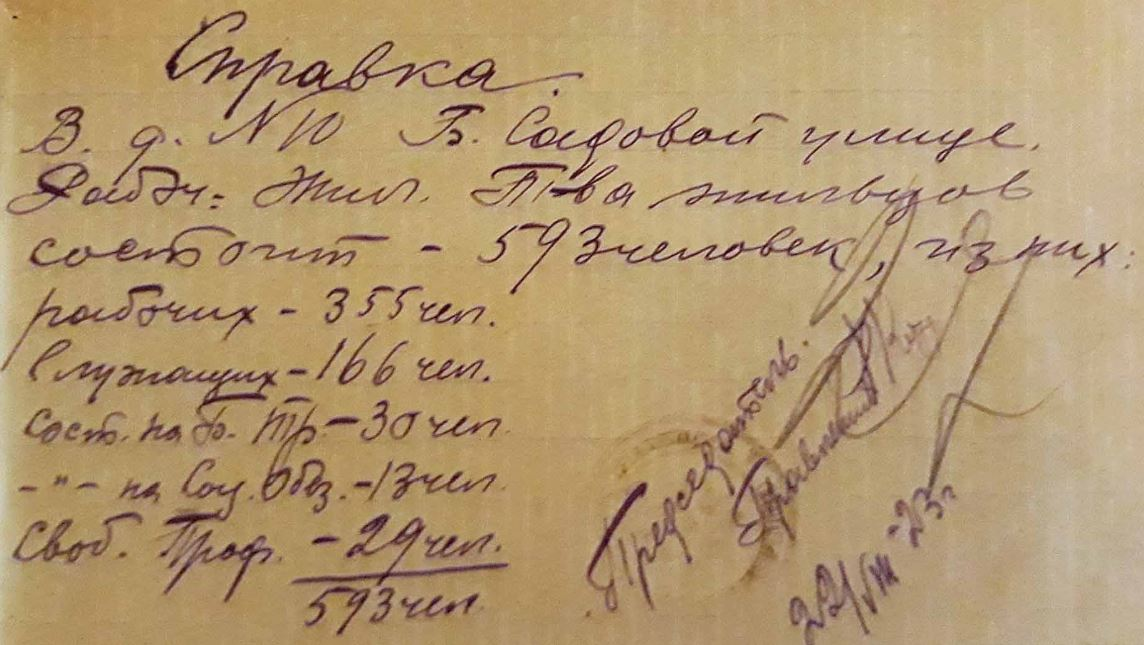 Справка.
В. д. N 10 Б. Садовой улице.
Рабоч: Жил. Т-ва жильцов
состоит - 593 человек, из них:
рабочих - 355 чел.
Служащих - 166 чел.
Сост. на б. тр. - 30 чел.
-"- на Соц. Обз. - 13 чел.
Своб. Проф. - 29 чел.
593 чел.
Председатель
Правления
22/VIII-23г